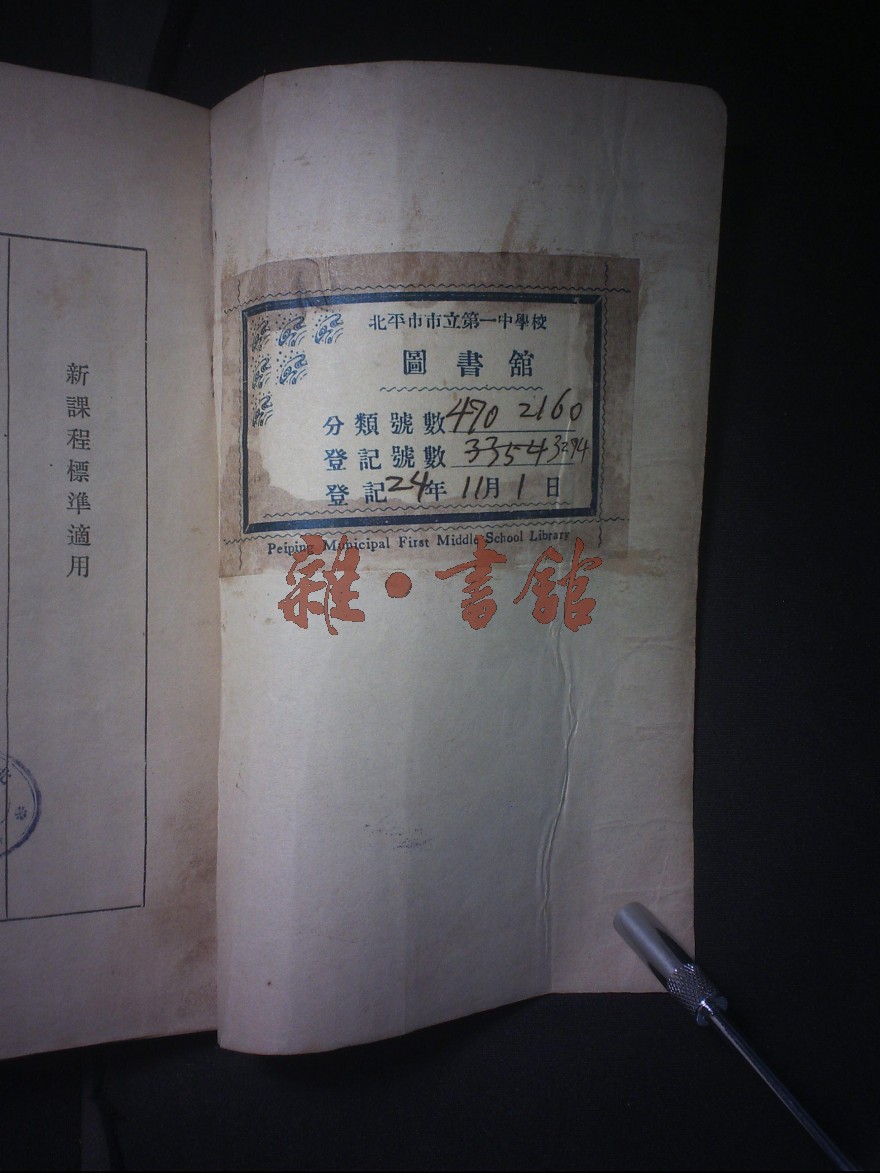 北平市市立第一中學校
圖書舘
分類號數 470 2160
登記號數 33543294
登記 24年 11月 1日
Peiping Municipal First Middle School Library
雜·書舘
新課程標準適用